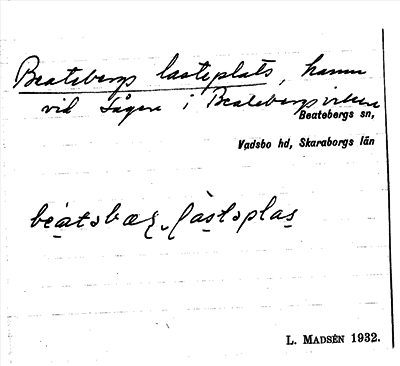 Beatebergs lasteplats, hamn
vid Sågen i Beatebergsviken
Beatebergs sn,
Vadsbo hd, Skaraborgs län
L. MADSÉN 1932.